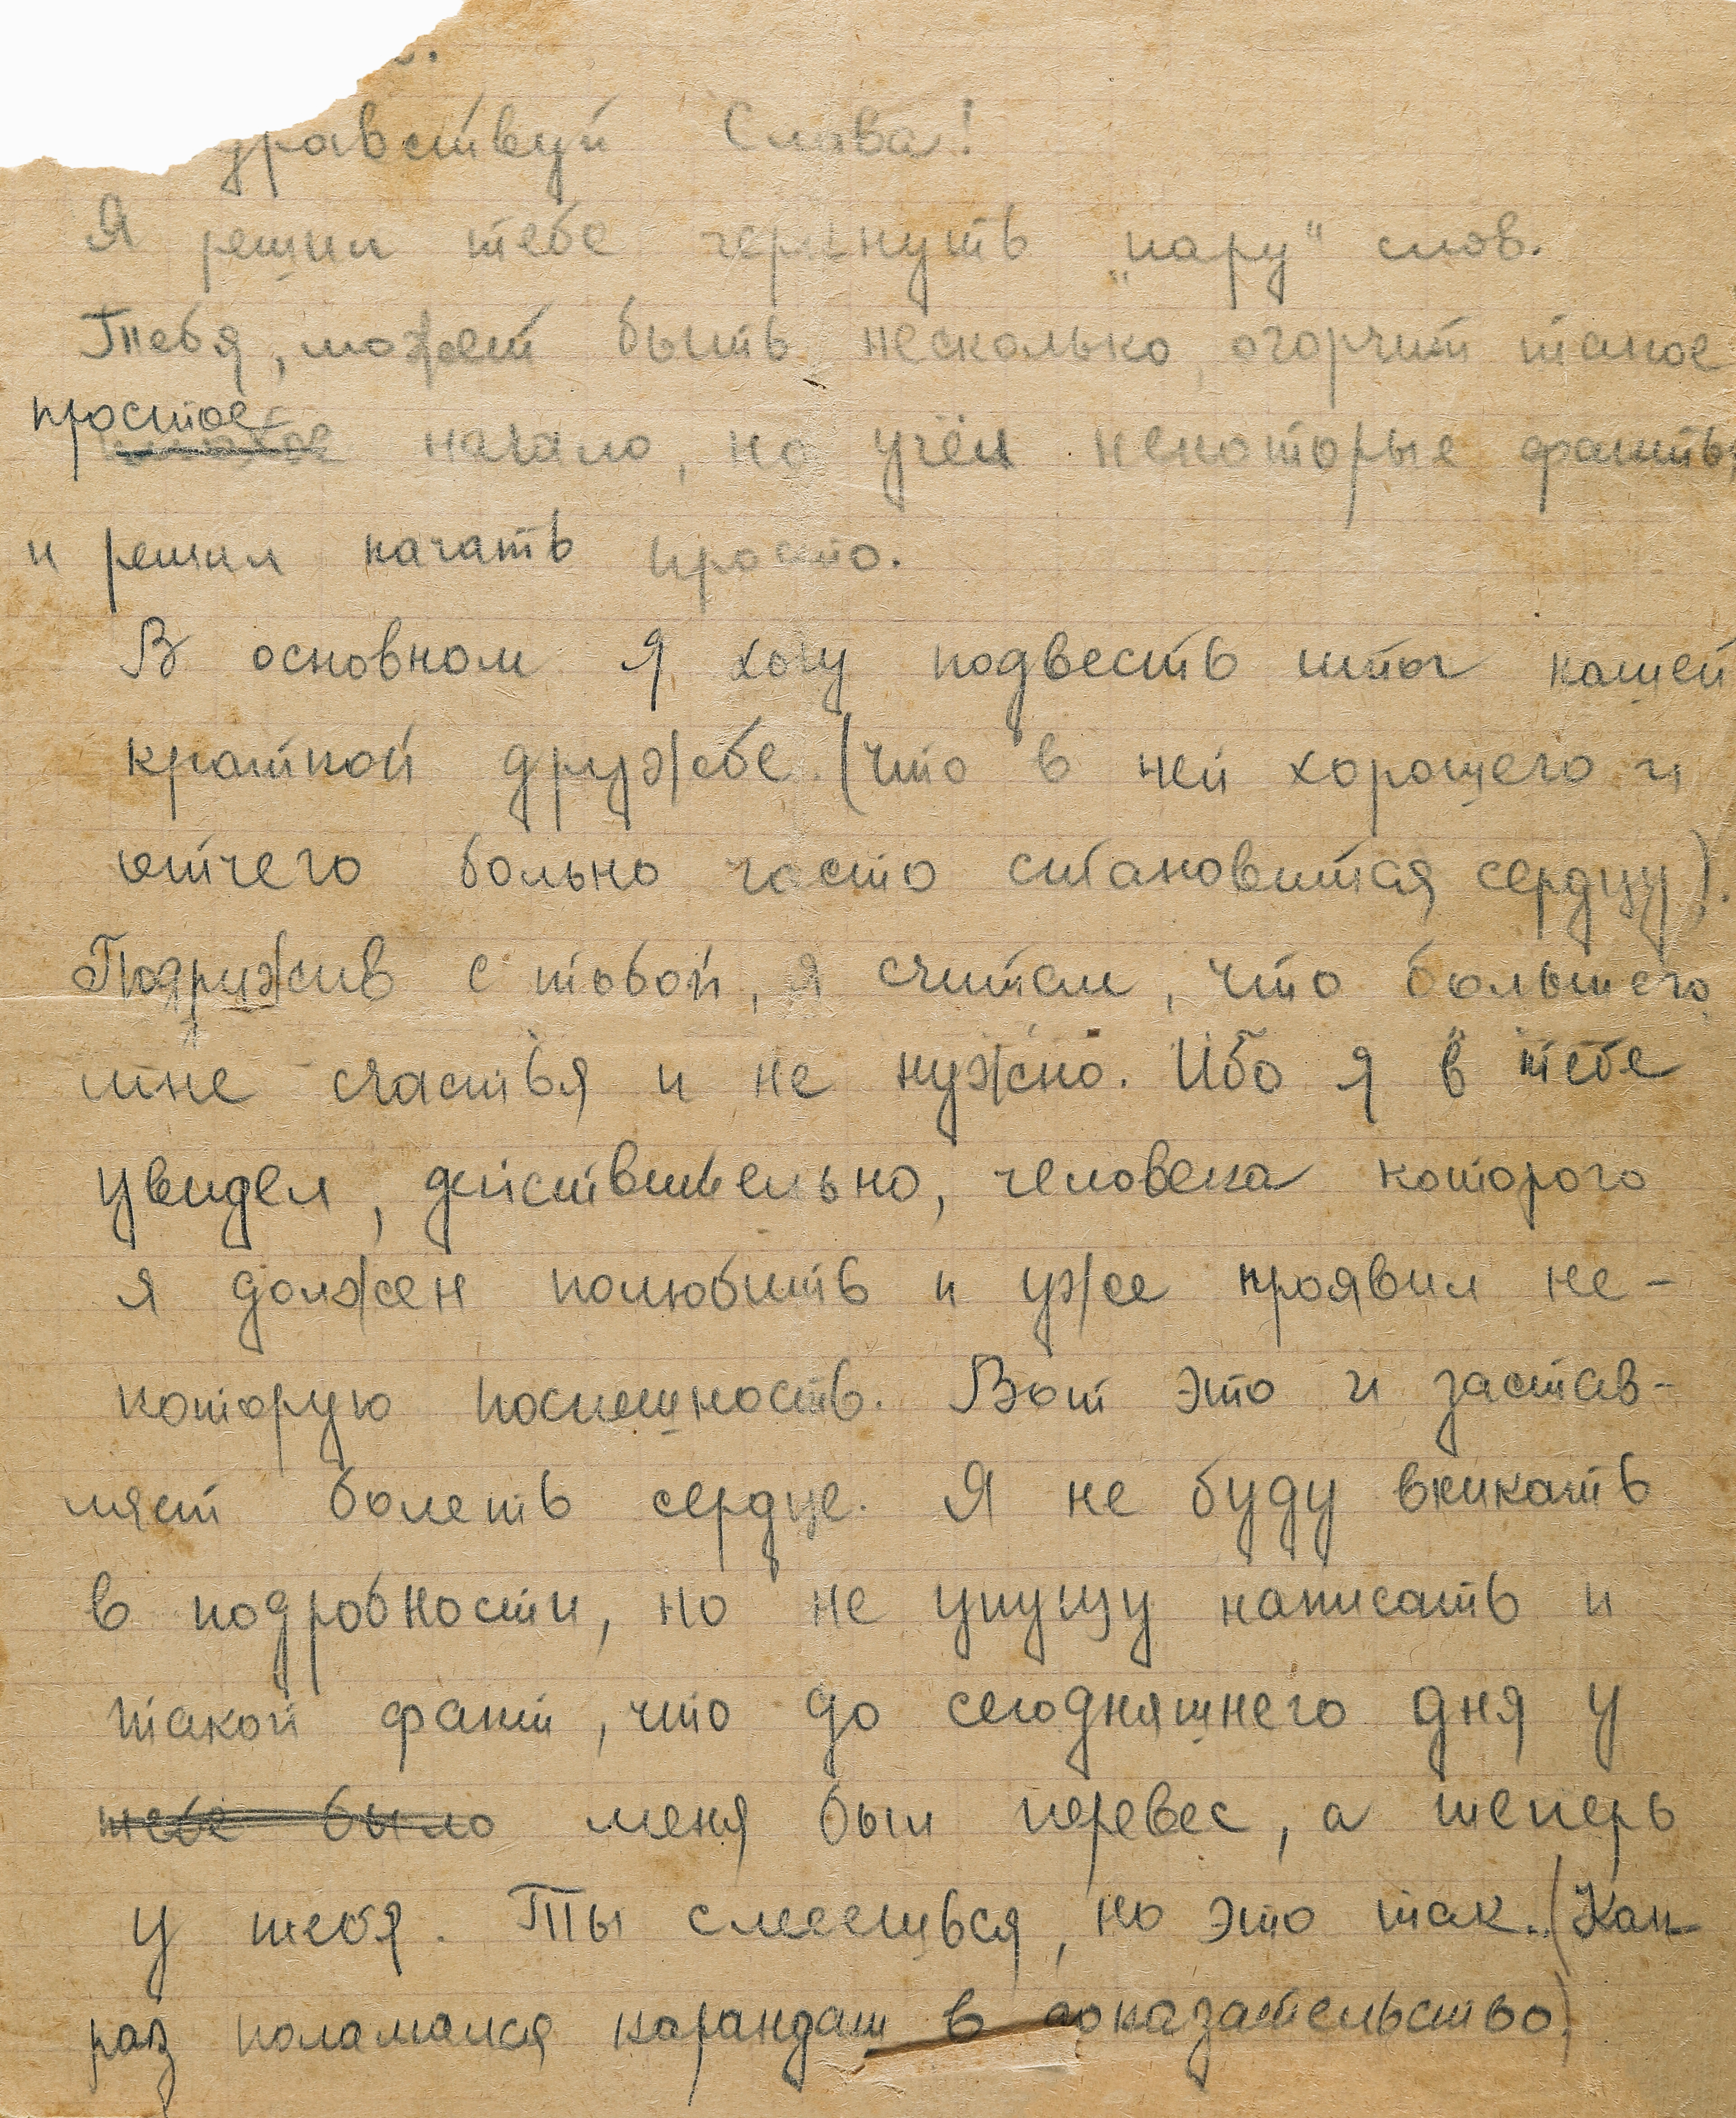 дравствуй Слава!
Я решил тебе черкнуть „пару“ слов.
Тебя, может быть, несколько огорчит такое
простое
начало, но учёл некоторые факты
и решил начать просто.
В основном я хочу подвесть итог нашей
краткой дружбе (что в ней хорошего и
отчего больно часто становится сердцу).
Подружив с тобой, я считал, что большего
мне счастья и не нужно. Ибо я в тебе
увидел, действительно, человека которого
я должен полюбить и уже проявил не-
которую поспешность. Вот это и застав-
ляет болеть сердце. Я не буду вникать
в подробности, но не упущу написать и
такой факт, что до сегодняшнего дня у
тебе было меня был перевес, а теперь
у тебя. Ты смеешься, но это так. (Как
раз поламался карандаш в доказательство)